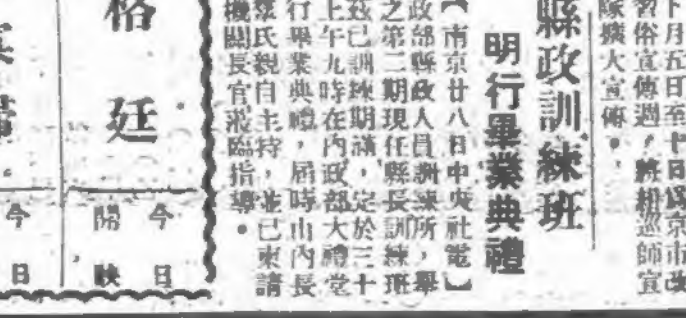 下月五日至十日爲京市改
習俗宣傳週，將組巡師宣
隊擴大宣傳。
縣政訓練班
明行畢業典禮
【南京廿八日中央社電】
政部縣政人員訓練所，舉
之第二期現任縣長訓練班
茲已訓練期滿，定於三十
上午九時在內政部大禮堂
行畢業典禮，屆時由內長
氏親自主持，並已柬請
機關長官蒞臨指導。
格廷
今日開映
今日